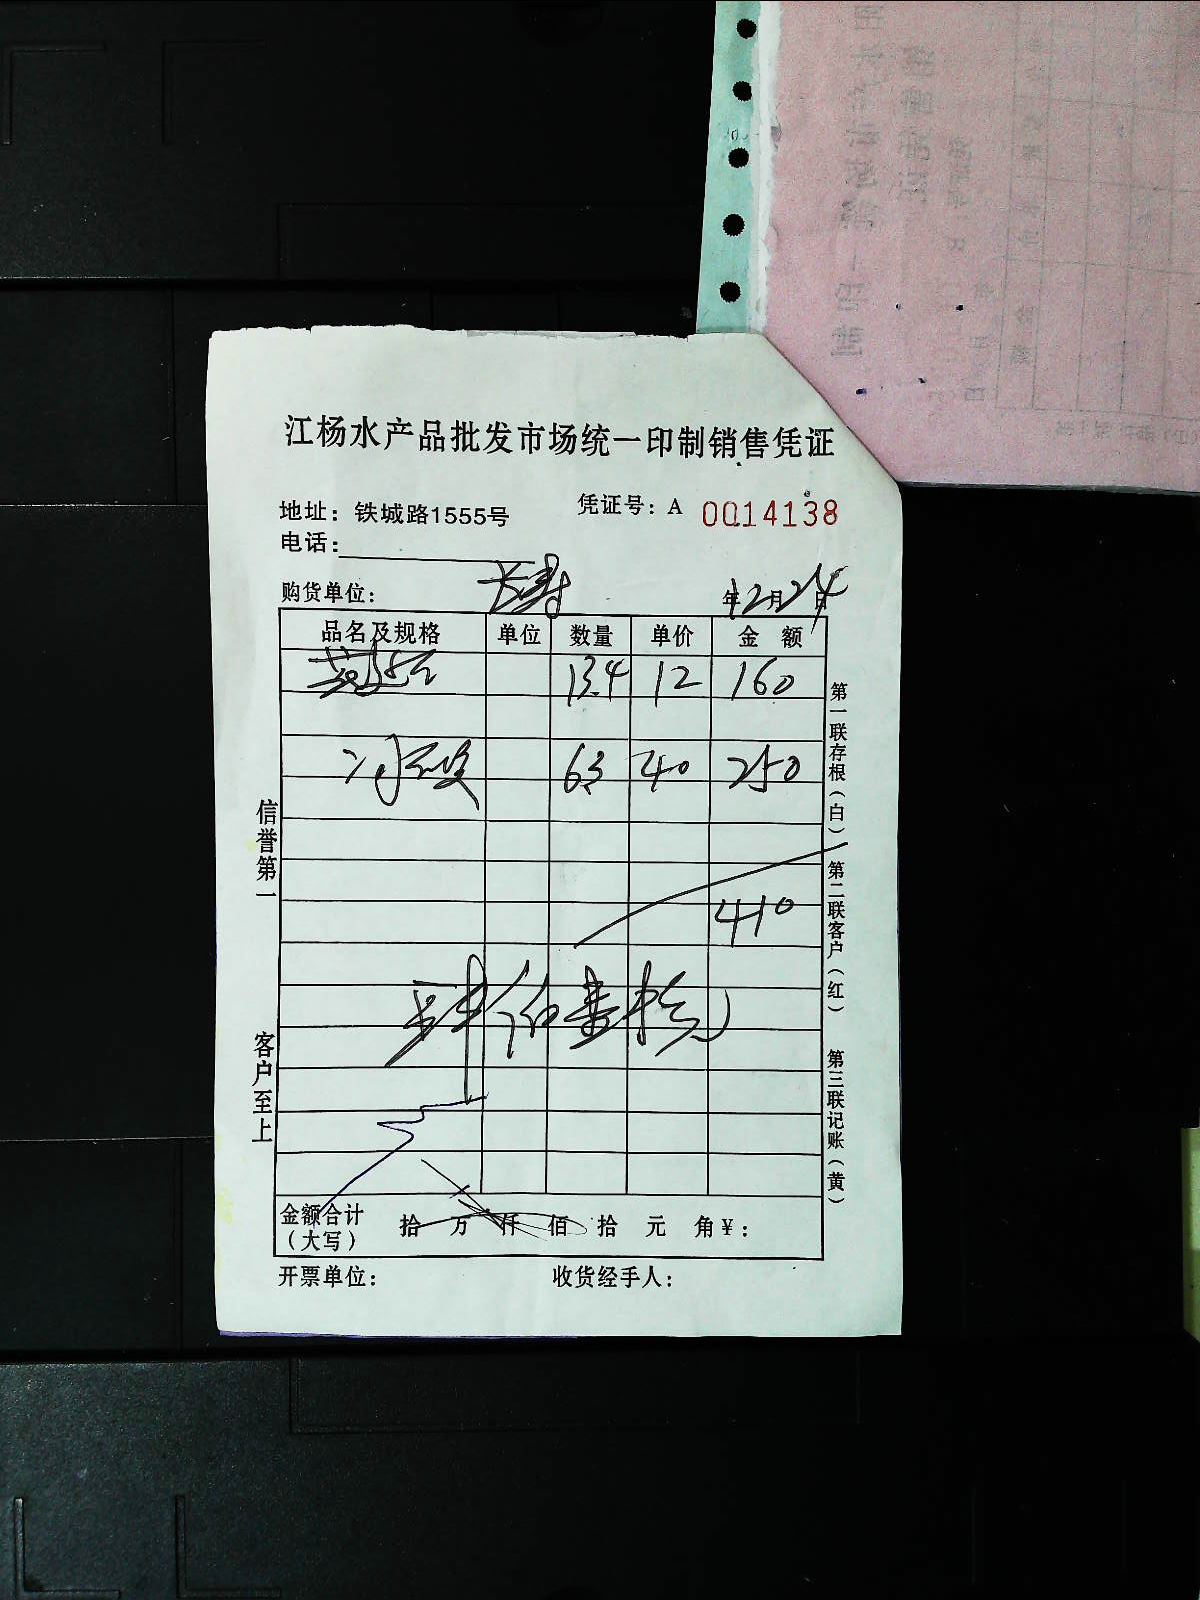 江杨水产品批发市场统一印制销售凭证
地址：铁城路1555号 凭证号：A 0014138
电话：
购货单位：长寿 年12月24日
品名及规格 单位 数量 单价 金额
13.4 12 160
6.3 40 250
410
肆佰壹拾元
金额合计（大写） 拾 万 仟 佰 拾 元 角 ¥：
开票单位： 收货经手人：
信誉第一 客户至上
第一联存根（白） 第二联客户（红） 第三联记账（黄）